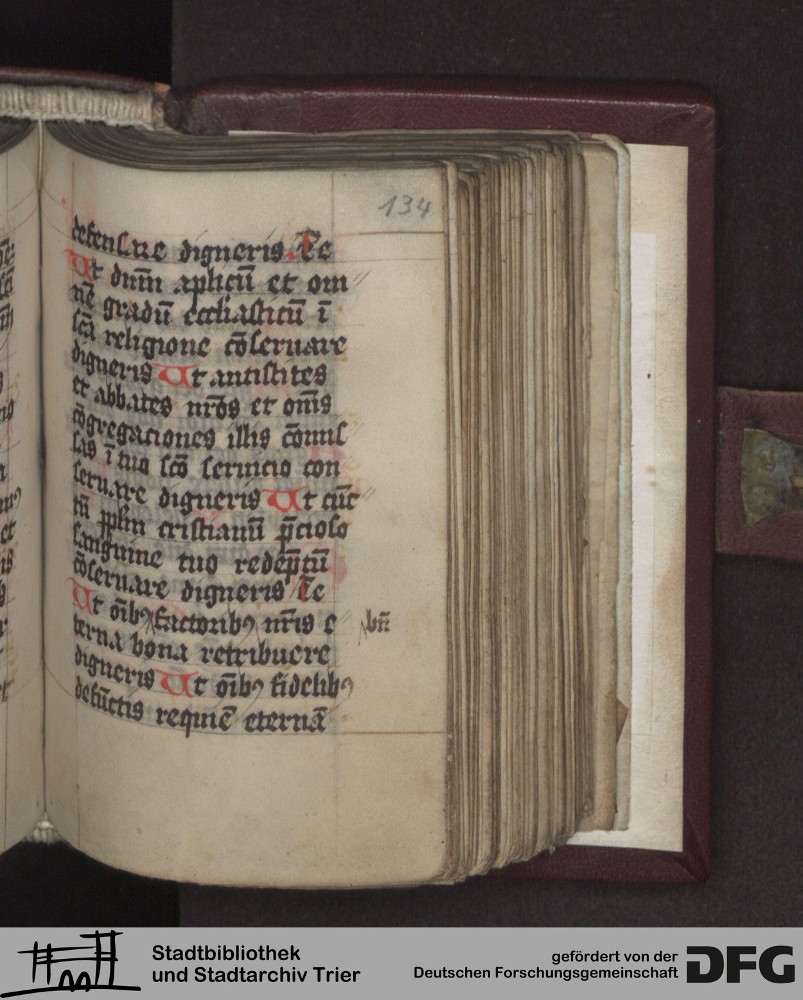 134
defensare digneris Te
Ut dnm̄ aplicū et om
nē gradū eccliasticū ī
scā religione cōseruare
digneris Ut antistites
et abbates nr̄os et om̄s
cōgregaciones illis cōmis
sas ī tuo scō seruicio con
seruare digneris Ut cūc
tū pplm cristianū p̄cioso
sanguine tuo redēptū
cōseruare digneris Te
Ut oībꝰ factoribꝰ nr̄is e
bn̄
terna bona retribuere
digneris Ut oībꝰ fidelibꝰ
defūctis requiē eternā
Stadtbibliothek
und Stadtarchiv Trier
gefördert von der
Deutschen Forschungsgemeinschaft
DFG